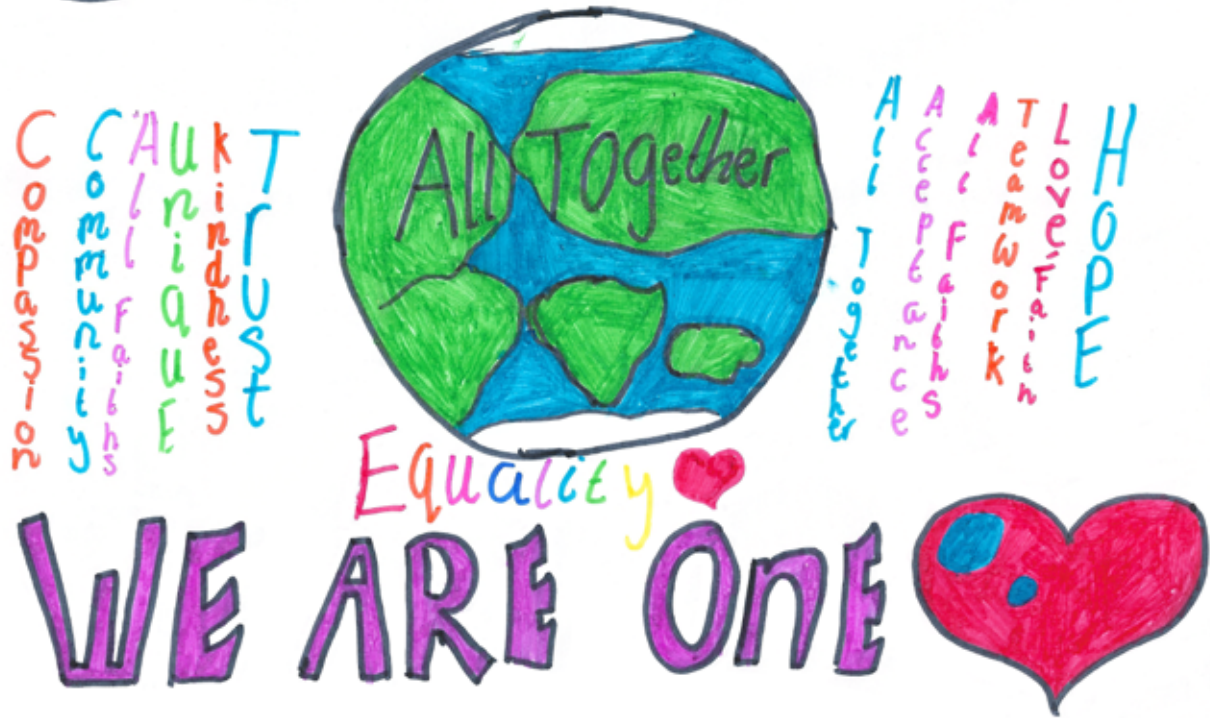 Compassion
Community
All Faiths
UniquE
kindness
TrUSt
All Together
All Together
Acceptance
All Faiths
TeamWork
Love Faith
HOPE
Equality
WE ARE OnE